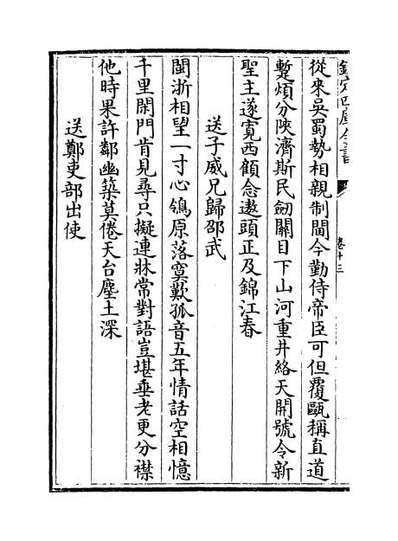 欽定四庫全書
卷十三
從來吳蜀勢相親制閫今勤侍帝臣可但覆甌稱直道
蹔煩分陜濟斯民劒關目下山河重井絡天開號令新
聖主遂寛西顧念遨頭正及錦江春
送子威兄歸邵武
閩浙相望一寸心鴒原落寞歎孤音五年情話空相憶
千里閒門肯見尋只擬連牀常對語豈堪垂老更分襟
他時果許鄰幽築莫倦天台塵土深
送鄭吏部出使